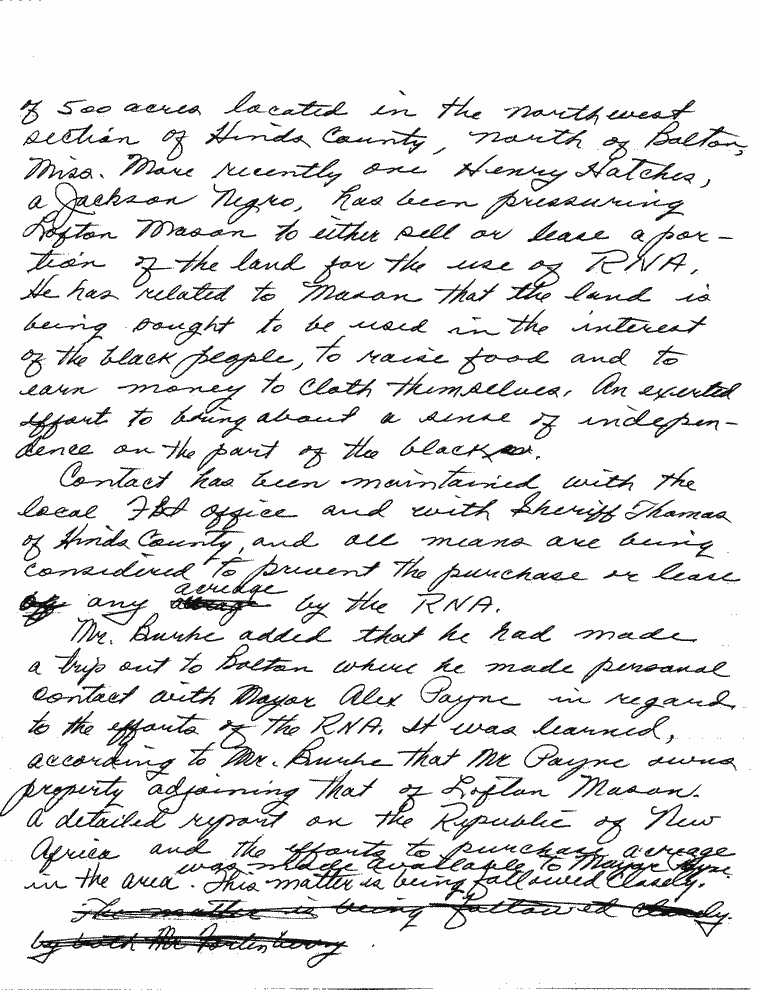 of 500 acres located in the northwest
section of Hinds County, north of Bolton,
Miss. More recently one Henry Hatches,
a Jackson Negro, has been pressuring
Lofton Mason to either sell or lease a por-
tion of the land for the use of RNA.
He has related to Mason that the land is
being sought to be used in the interest
of the black people, to raise food and to
earn money to cloth themselves. An exerted
effort to bring about a sense of indepen-
dence on the part of the blacks.
Contact has been maintained with the
local FBI office and with Sheriff Thomas
of Hinds County, and all means are being
considered to prevent the purchase or lease
acreage
of any by the RNA.
Mr. Burke added that he had made
a trip out to Bolton where he made personal
contact with Mayor Alex Payne in regard
to the efforts of the RNA. It was learned,
according to Mr. Burke that Mr Payne owns
property adjoining that of Lofton Mason.
A detailed report on the Republic of New
Africa and the efforts to purchase acreage
was made available to Mayor
in the area. This matter is being followed closely.
The matter is being followed closely.
by both Mr Fortenberry